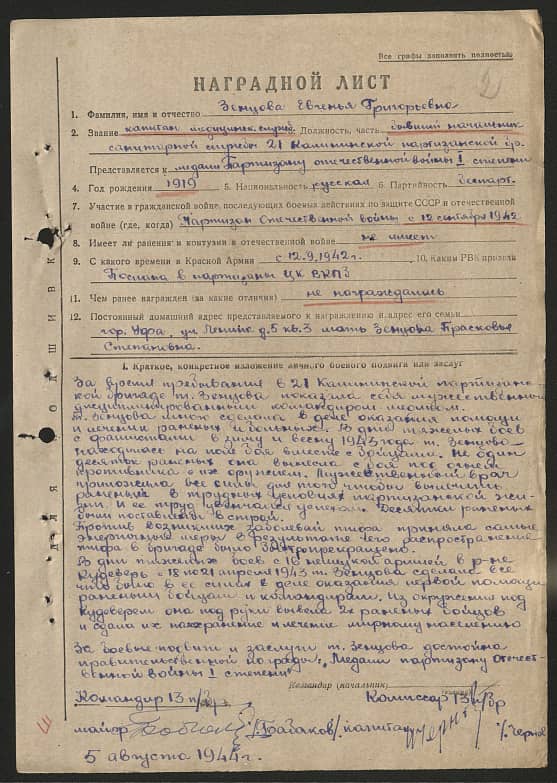 Все графы заполнять полностью
2
НАГРАДНОЙ ЛИСТ
1. Фамилия, имя и отчество Зенцова Евгенья Григорьевна
2. Звание капитан медицинск. служб. Должность, часть бывший начальник
санитарной службы 21 Калининской партизанской бр.
Представляется к медали Партизану отечественной войны I степени
4. Год рождения 1919 5. Национальность русская 6. Партийность беспарт.
7. Участие в гражданской войне, последующих боевых действиях по защите СССР и отечественной
войне (где, когда) Партизан Отечественной войны с 12 сентября 1942
8. Имеет ли ранения и контузии в отечественной войне не имеет
9. С какого времени в Красной Армии с 12.9.1942г. 10. Каким РВК призван
Послана в партизаны ЦК ВКПБ
11. Чем ранее награжден (за какие отличия) не награждалась
12. Постоянный домашний адрес представляемого к награждению и адрес его семьи
гор. Уфа, ул Ленина д.5 кв.3 мать Зенцова Прасковья
Степановна.
Для подшивки
I. Краткое, конкретное изложение личного боевого подвига или заслуг
За время пребывания в 21 Калининской партизанс-
кой бригаде т. Зенцова показала себя мужественным
дисциплинированным командиром медиком.
т. Зенцова много сделала в деле оказания помощи
и лечении раненых и больных. В дни тяжелых боев
с фашистами в зиму и весну 1943 года т. Зенцова
находилась на поле боя вместе с бойцами. Не один
десяток раненых она вынесла с боя под огнем
противника с их оружием. Мужественный врач
приложила все силы для того чтобы вылечить
раненых в трудных условиях партизанской жи-
зни. И ее труд увенчался успехом. Десятки раненых
были поставлены в строй.
Против возникших заболеваний тифа приняла самые
энергичные меры в результате чего распространение
тифа в бригаде было прекращено.
В дни тяжелых боев с 16 немецкой армией в р-не
Кудеверь с 18 по 21 апреля 1943 т. Зенцова сделала все
что было в ее силах в деле оказания первой помощи
раненым бойцам и командирам. Из окружения под
Кудеверем она под руки вывела 2х раненых бойцов
и сдала их на хранение и лечение мирному населению
За боевые подвиги и заслуги т. Зенцова достойна
правительственной награды: „Медали партизану Отечест-
венной войны I степени"
Командир (начальник)
Командир 13 п/бр. Комиссар 13 п/бр
майор /Бабаков/ капитан /Чернов
5 августа 1944г.